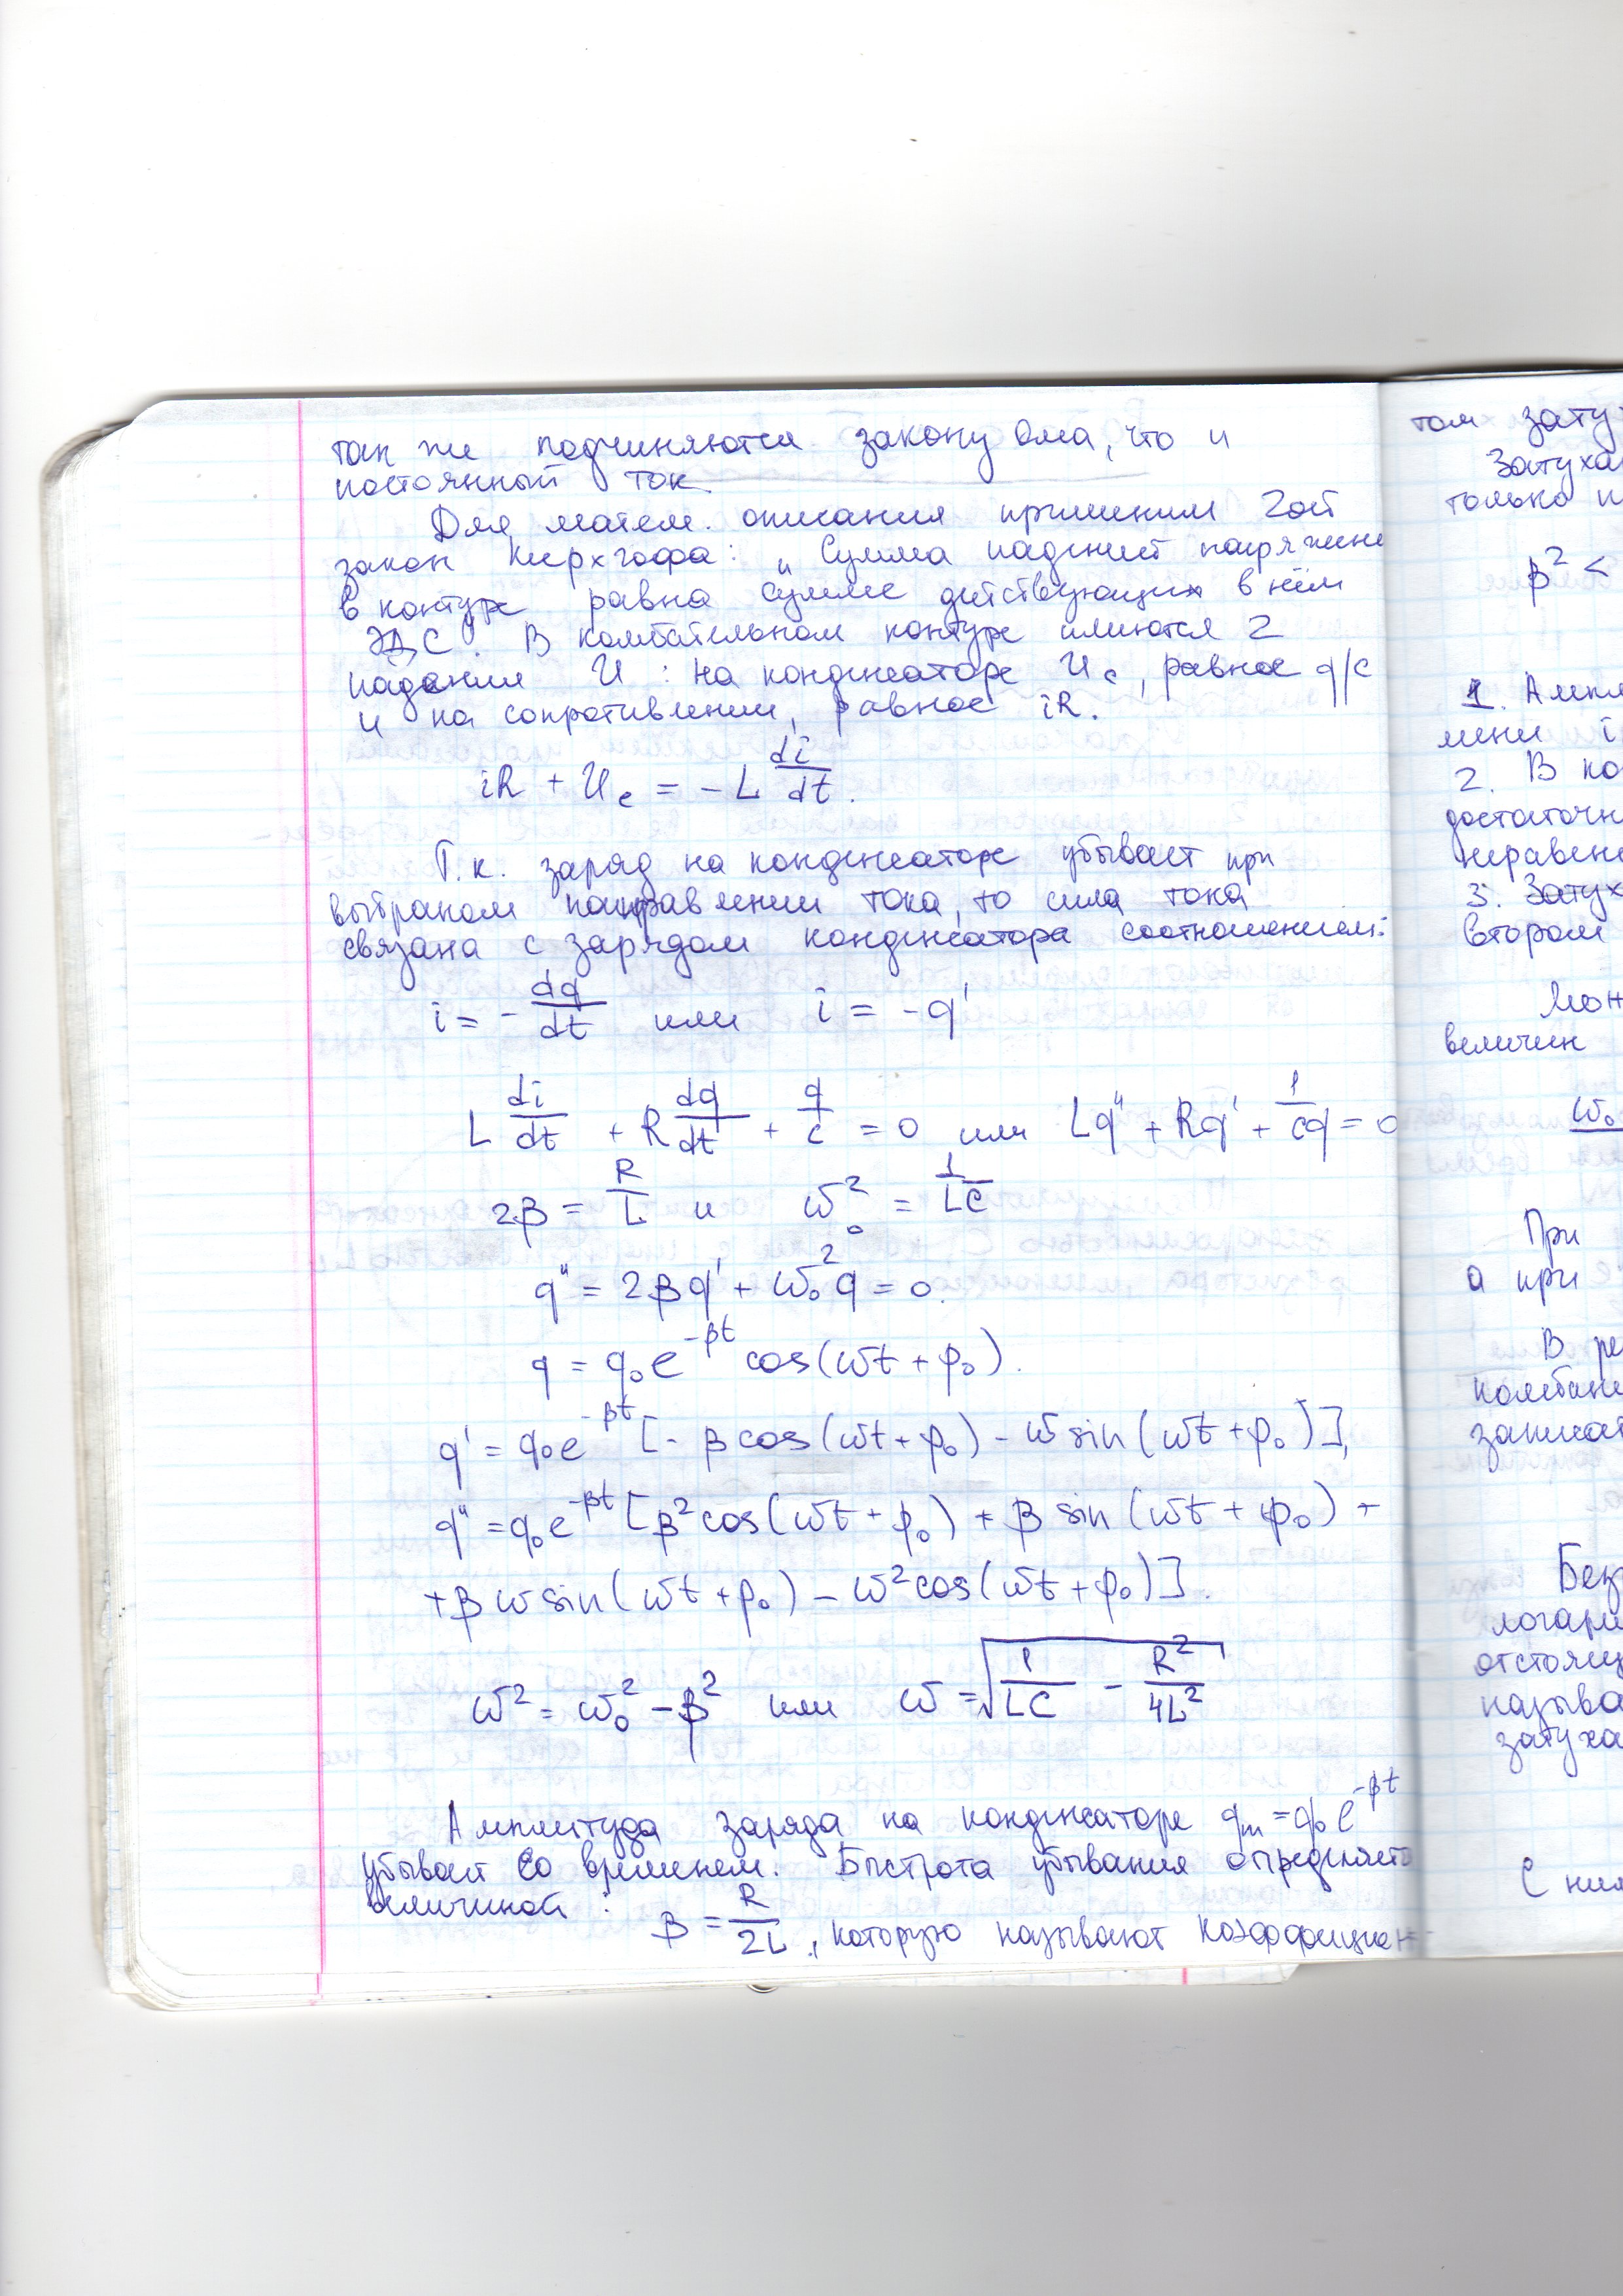 так же подчиняются закону Ома, что и
постоянный ток.
Для матем. описания применим 2ой
закон Кирхгофа: „Сумма падений напряжени
в контуре равна сумме действующих в нём
ЭДС". В колебательном контуре имеются 2
падения U : на конденсаторе Uc, равное q/c
и на сопротивлении, равное iR.
iR + Uc = - L di/dt.
Т.к. заряд на конденсаторе убывает при
выбраном направлении тока, то сила тока
связана с зарядом конденсатора соотношением:
i = - dq/dt или i = -q'
L di/dt + R dq/dt + q/c = 0 или Lq" + Rq' + 1/cq = 0
2β = R/L и ω₀² = 1/LC
q" = 2βq' + ω₀²q = 0.
q = q₀e^-βt cos(ωt + φ₀).
q' = q₀e^-βt [- β cos(ωt + φ₀) - ω sin(ωt + φ₀)],
q" = q₀e^-βt [β² cos(ωt + φ₀) + β sin(ωt + φ₀) +
+ β ω sin(ωt + φ₀) - ω² cos(ωt + φ₀)].
ω² = ω₀² - β² или ω = √(1/LC - R²/4L²)
Амплитуда заряда на конденсаторе qm = q₀e^-βt
убывает со временем. Быстрота убывания определяетс
величиной :
β = R/2L, которую называют коэффициен-
том зату
Затуха
только
β² <
1. Ампл
мени i
2. В ко
достаточн
неравен
3. Затух
втором
Мож
величин
ω₀
При
а при
В ре
колебан
записат
Без
логари
отстоящ
называ
затуха
С ним